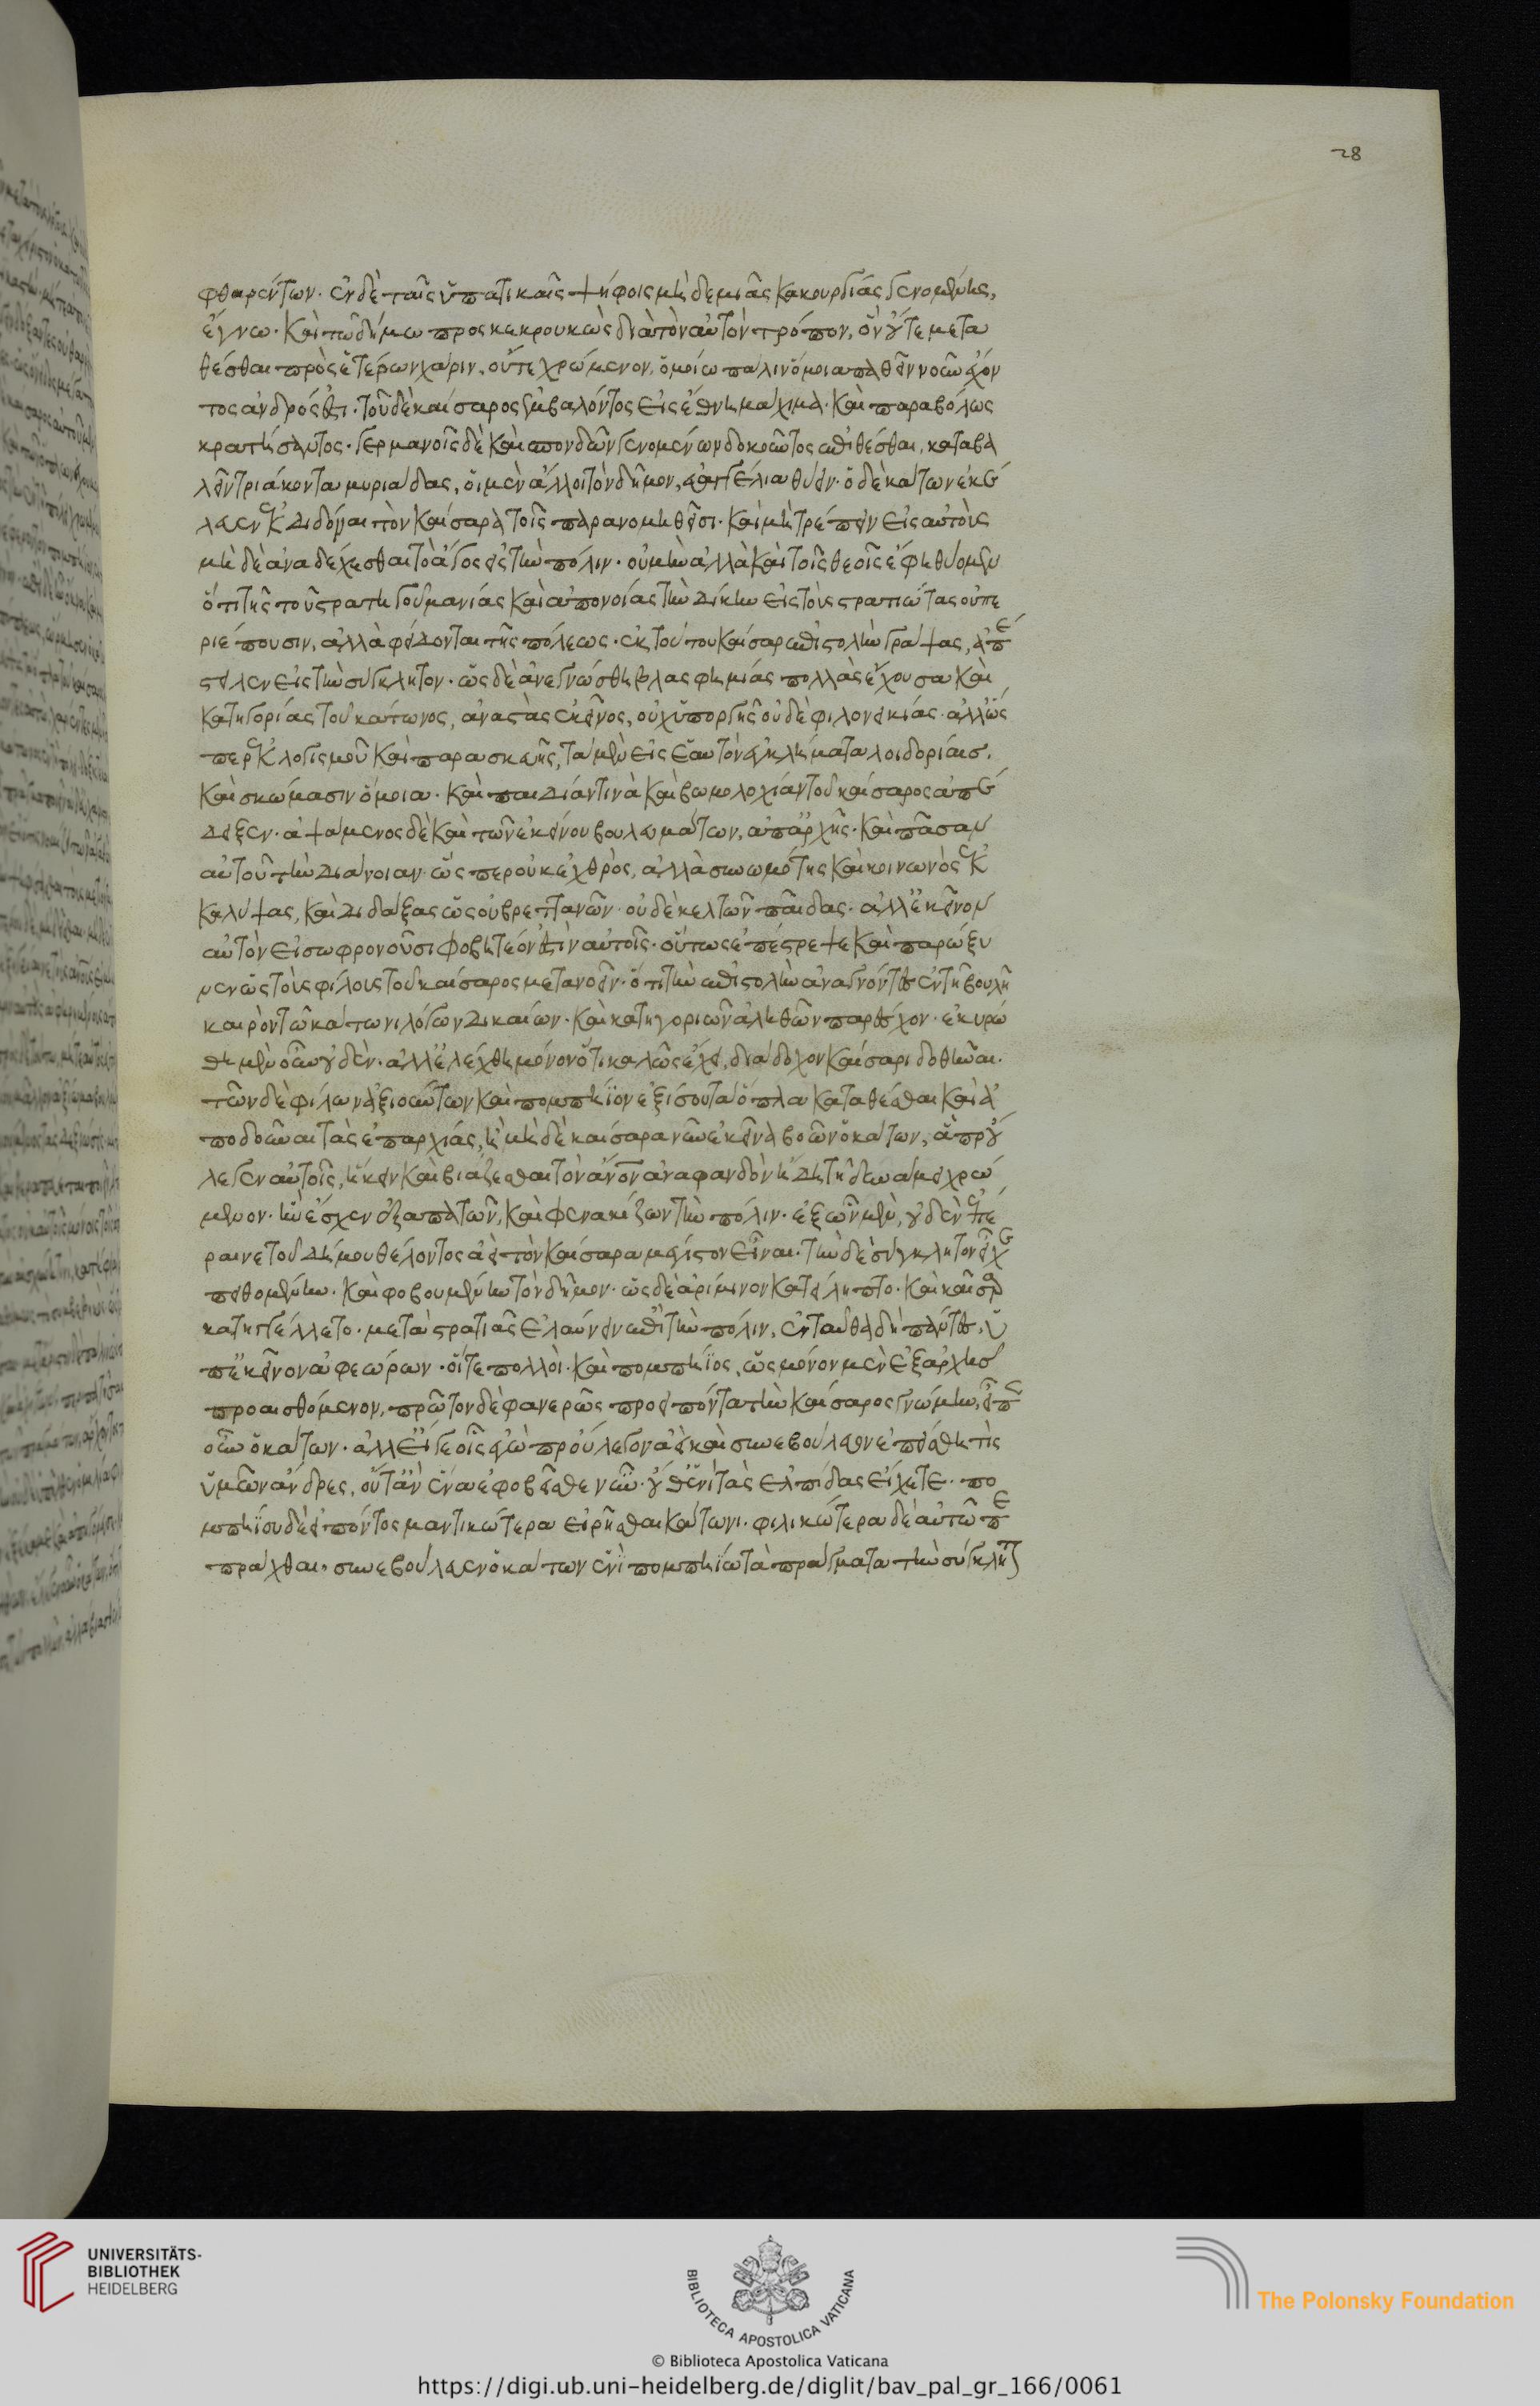 28
φθαρέντων. ἐν δὲ ταῖς ὑπατικαῖς ψήφοις μὴ δεμιᾶς κακουργίας γενομένης,
ἔγνω. καὶ τῶ δήμω προσκεκρουκὼς διὰ τὸν αὐτὸν τρόπον, ὃν οὔτε μετα
θέσθαι πρὸς ἑτέρων χάριν, οὔτε χρώμενον, ὁμοίω πάλιν ὅμοια παθεῖν νοῦν ἔχον
τος ἀνδρός ἐστι. τοῦ δὲ καίσαρος ἐμβαλόντος εἰς ἔθνη μάχιμα. καὶ παραβόλως
κρατήσαντος. γερμανοῖς δὲ καὶ σπονδῶν γενομένων δοκοῦντος ἐπιθέσθαι, καταβα
λεῖν τριάκοντα μυριάδας, οἱ μὲν ἄλλοι τὸν δῆμον, εὐαγγέλια θύειν. ὁ δὲ κάτων ἐκέ
λευεν ἐκδιδόναι τὸν καίσαρα τοῖς παρανομηθεῖσι. καὶ μὴ τρέπειν εἰς αὐτοὺς
μὴ δὲ ἀναδέχεσθαι τὸ ἄγος εἰς τὴν πόλιν. οὐ μὴν ἀλλὰ καὶ τοῖς θεοῖς ἔφη θύομεν
ὅτι τῆς τοῦ στρατηγοῦ μανίας καὶ ἀπονοίας τὴν δίκην εἰς τοὺς στρατιώτας οὐ τρε
ριέπουσιν, ἀλλὰ φείδονται τῆς πόλεως. ἐκ τούτου καίσαρ ἐπιστολὴν γράψας, ἀπέ
στειλεν εἰς τὴν σύγκλητον. ὡς δὲ ἀνεγνώσθη βλασφημίας πολλὰς ἔχουσα καὶ
κατηγορίας τοῦ κάτωνος, ἀναστὰς ἐκεῖνος, οὐχ ὑπ ὀργῆς οὐδὲ φιλονεικίας. ἀλλ ὥς
περ ἐκ λογισμοῦ καὶ παρασκευῆς, τὰ μὲν εἰς ἑαυτὸν ἐγκλήματα λοιδορίαισ.
καὶ σκώμασιν ὅμοια. καὶ παιδιάν τινὰ καὶ βωμολοχίαν τοῦ καίσαρος ἀπέ
δειξεν. ἁψάμενος δὲ καὶ τῶν ἐκείνου βουλευμάτων, ἀπ ἀρχῆς. καὶ πᾶσαν
αὐτοῦ τὴν διάνοιαν ὥσπερ οὐκ ἐχθρὸς, ἀλλὰ συνωμότης καὶ κοινωνὸς ἐκ
καλύψας, καὶ διδάξας ὡς οὐ βρεττανῶν. οὐδὲ κελτῶν παῖδας. ἀλλ ἐκεῖνον
αὐτὸν εἰ σωφρονοῦσι φοβητέον ἐστὶν αὐτοῖς. οὕτως ἐπέστρεψε καὶ παρώξυ
νεν ὡς τοὺς φίλους τοῦ καίσαρος μετανοεῖν. ὅτι τὴν ἐπιστολὴν ἀναγνόντες ἐν τῆ βουλῆ
καιρὸν τῶ κάτωνι λόγων δικαίων. καὶ κατηγοριῶν ἀληθῶν παρέσχον. ἐκυρώ
θη μὲν οὖν οὐδὲν. ἀλλ ἐλέχθη μόνον ὅτι καλῶς ἔχει, διάδοχον καίσαρι δοθῆναι.
τῶν δὲ φίλων ἀξιούντων καὶ πομπήϊον ἐξίσου τὰ ὅπλα καταθέσθαι καὶ ἀ
ποδοῦναι τὰς ἐπαρχίας, ἢ μὴ δὲ καίσαρα νῦν ἐκεῖνα βοῶν ὁ κάτων, ἃ πρού
λεγεν αὐτοῖς, ἥκειν καὶ βιάζεσθαι τὸν ἄνον ἀναφανδὸν ἤδη τῆ δυνάμει χρώ
μενον. ἣν ἔσχεν ἐξαπατῶν, καὶ φενακίζων τὴν πόλιν. ἔξω μὲν, οὐδὲν ἐπέ
ραινε τοῦ δήμου θέλοντος ἀεὶ τὸν καίσαρα μέγιστον εἶναι. τὴν δὲ σύγκλητον εἶχε
πειθομένην. καὶ φοβουμένην τὸν δῆμον. ὡς δὲ ἀρίμινον κατείληπτο. καὶ καῖσαρ
κατηγγέλλετο. μετὰ στρατιᾶς ἐλαύνειν ἐπὶ τὴν πόλιν, ἐνταῦθα δὴ πάντες,
ἐπ ἐκεῖνον ἀφεώρων. οἵ τε πολλοὶ. καὶ πομπήϊος, ὡς μόνον μὲν ἐξ ἀρχῆσ
προαισθόμενον, πρῶτον δὲ φανερῶς προειπόντα τὴν καίσαρος γνώμην, εἶπεν
οὖν ὁ κάτων. ἀλλ εἴγε οἷς ἐγὼ προὔλεγον ἀεὶ καὶ συνεβούλευον ἐπείσθη τίς
ὑμῶν ἄνδρες, οὔτ ἂν ἕνα ἐφοβεῖσθε νῦν. οὔτ ἐν ἑνὶ τὰς ἐλπίδας εἴχετε. πο
μπηΐου δὲ εἰπόντος μαντικώτερα εἰρῆσθαι κάτωνι. φιλικώτερα δὲ αὐτῶ πε
πράχθαι. συνεβούλευεν ὁ κάτων ἑνὶ πομπηΐω τὰ πράγματα τὴν σύγκλητ
UNIVERSITÄTS-
BIBLIOTHEK
HEIDELBERG
BIBLIOTECA APOSTOLICA VATICANA
The Polonsky Foundation
© Biblioteca Apostolica Vaticana
https://digi.ub.uni-heidelberg.de/diglit/bav_pal_gr_166/0061